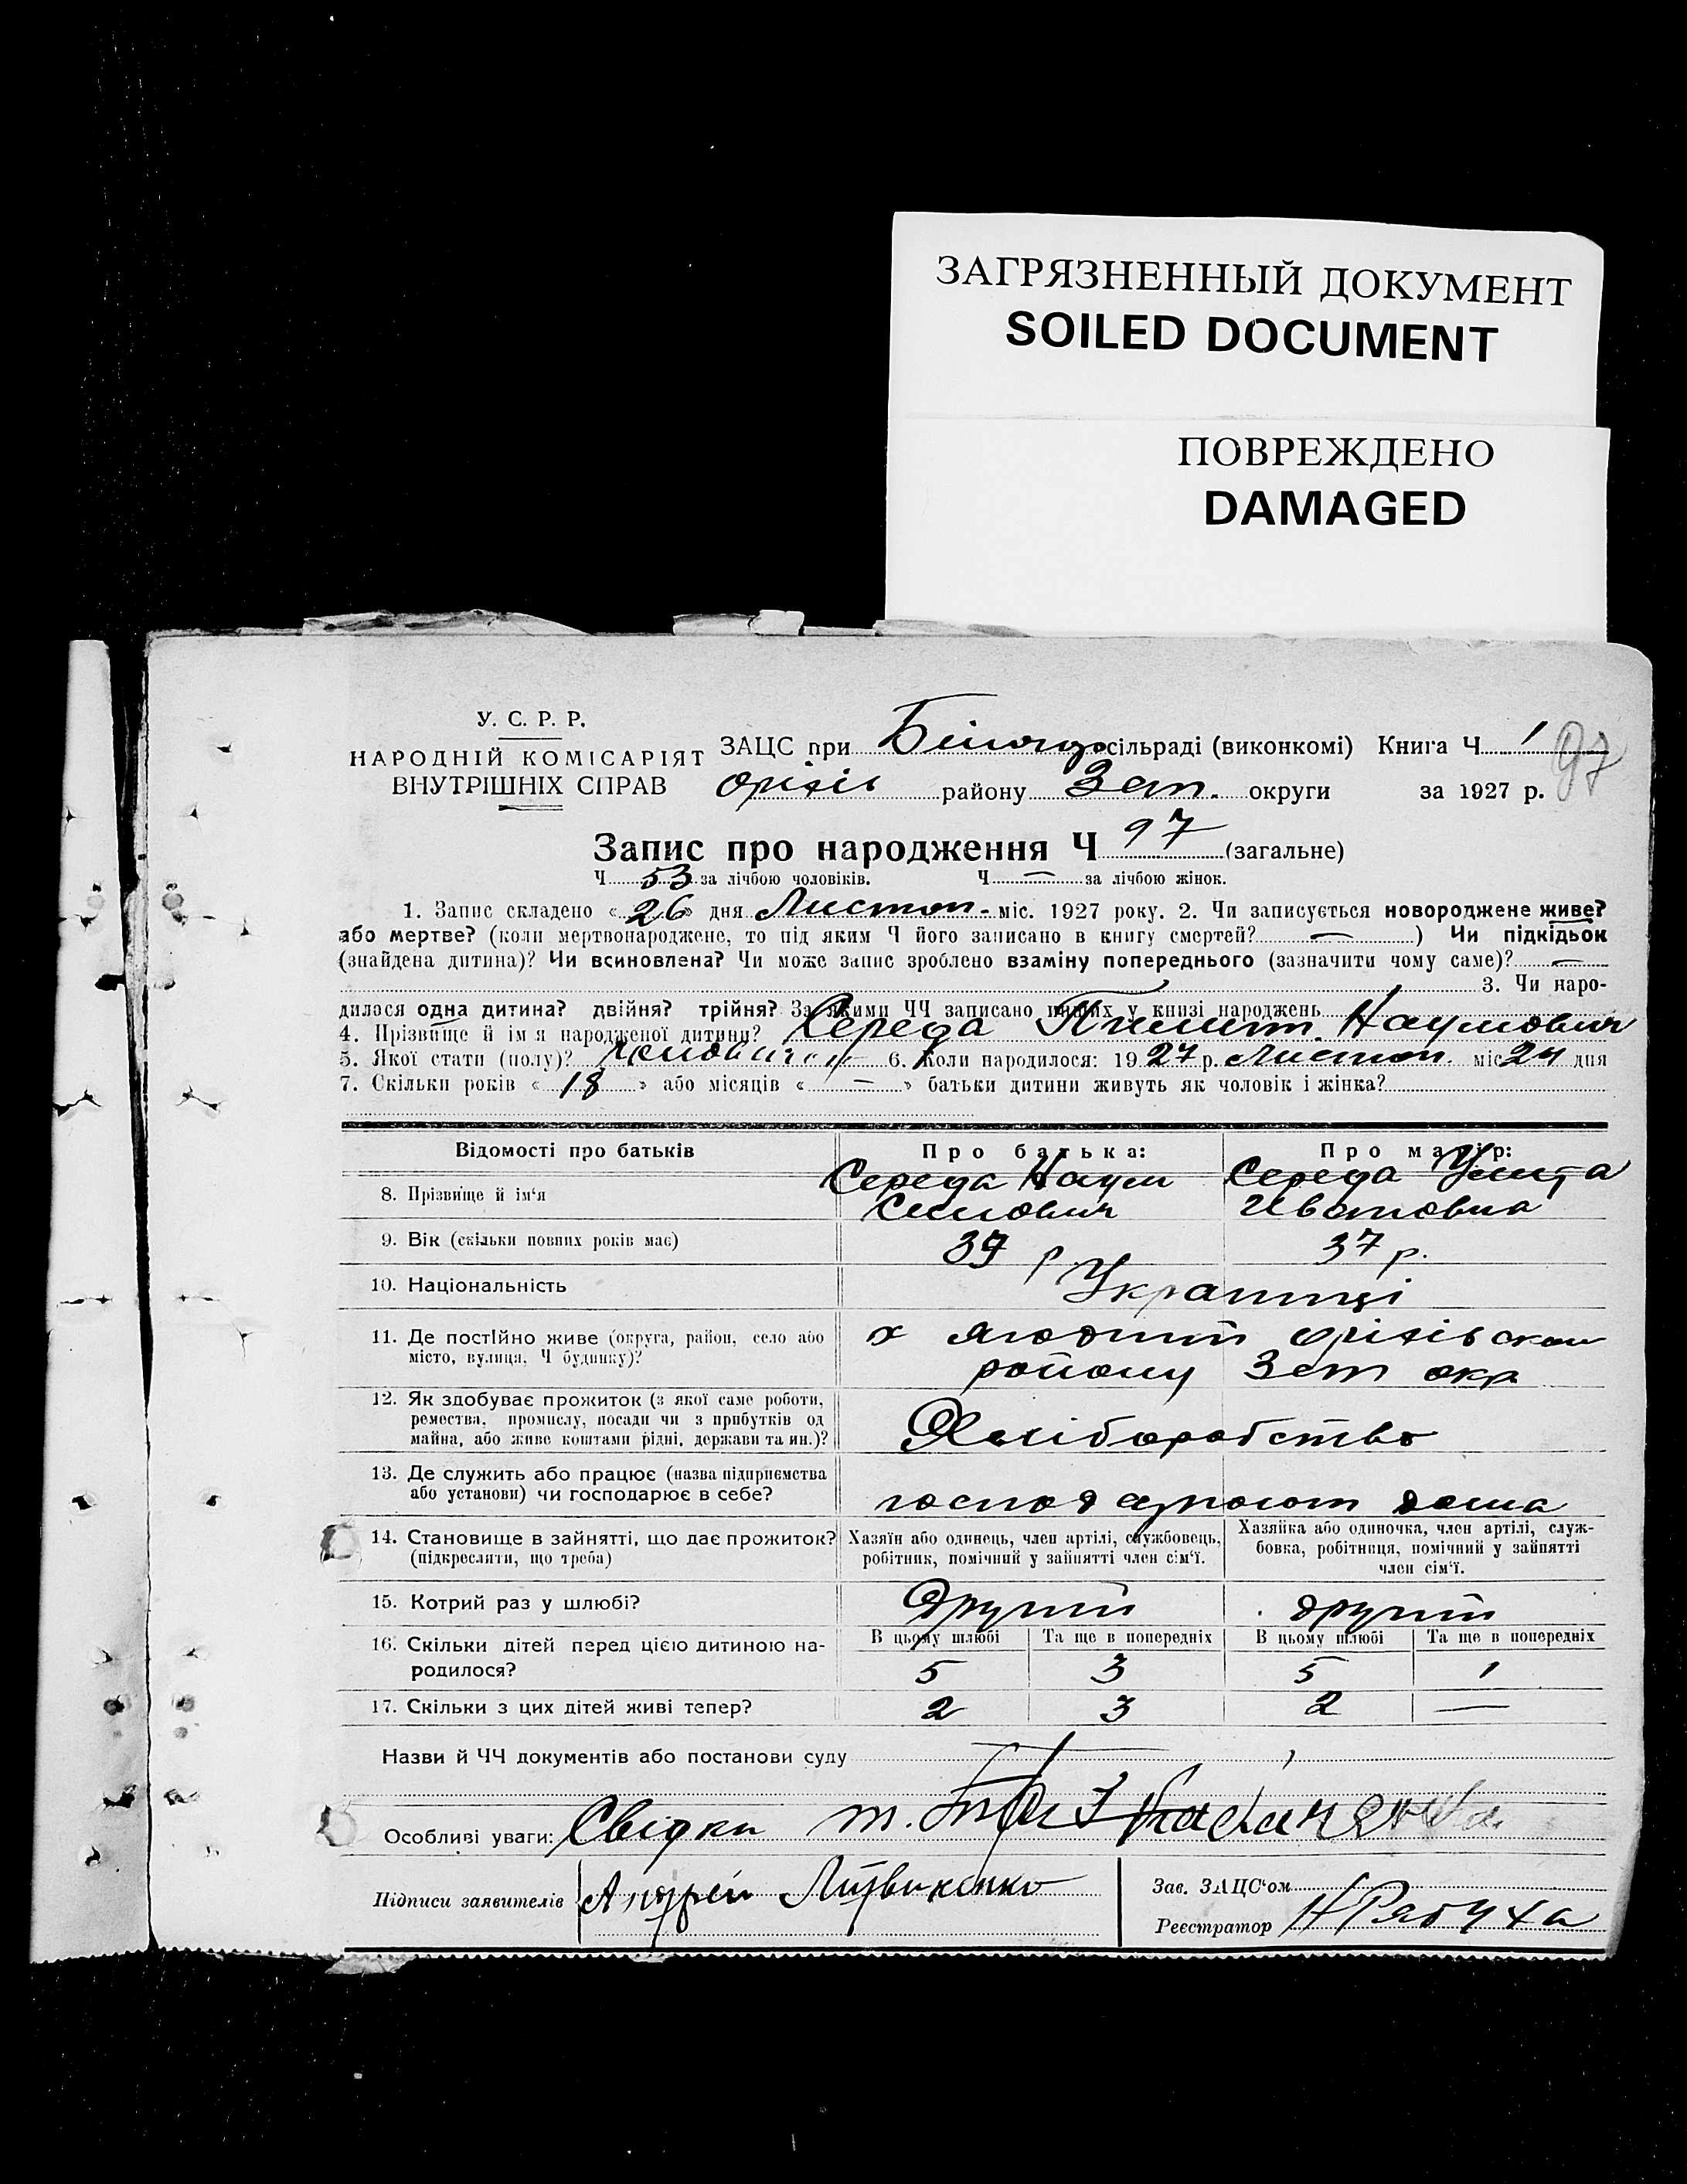 ЗАГРЯЗНЕННЫЙ ДОКУМЕНТ
SOILED DOCUMENT
ПОВРЕЖДЕНО
DAMAGED
У. С. Р. Р.
НАРОДНІЙ КОМІСАРІЯТ
ВНУТРІШНІХ СПРАВ
ЗАЦС при сільраді (виконкомі) Книга Ч 1
97
оріхів району Зап. округи за 1927 р.
Запис про народження Ч 97 (загальне)
Ч 53 за лічбою чоловіків. Ч — за лічбою жінок.
1. Запис складено «26» дня Листоп. міс. 1927 року. 2. Чи записується новороджене живе?
або мертве? (коли мертвонароджене, то під яким Ч його записано в книгу смертей? — ) Чи підкідьок
(знайдена дитина)? Чи всиновлена? Чи може запис зроблено взаміну попереднього (зазначити чому саме)? —
3. Чи наро-
дилося одна дитина? двійня? трійня? За якими ЧЧ записано инших у книзі народжень
4. Прізвище й ім'я народженої дитини? Середа Пилип Наумович
5. Якої стати (полу)? 6. Коли народилося: 1927 р. Листоп. міс 24 дня
7. Скільки років «18» або місяців « — » батьки дитини живуть як чоловік і жінка?
Відомості про батьків
Про батька:
Про матір:
8. Прізвище й ім'я
Середа Наум
Середа
Ивановна
9. Вік (скільки повних років має)
39 р
37 р.
10. Національність
Украинці
11. Де постійно живе (округа, район, село або
місто, вулиця, Ч будинку)?
х оріхівском
району Зап окр
12. Як здобуває прожиток (з якої саме роботи,
ремества, промислу, посади чи з прибутків од
майна, або живе коштами рідні, держави та ин.)?
Хліборобство
13. Де служить або працює (назва підприємства
або установи) чи господарює в себе?
господарюют дома
14. Становище в зайнятті, що дає прожиток?
(підкреслити, що треба)
Хазяїн або одинець, член артілі, службовець,
робітник, помічний у зайнятті член сім'ї.
Хазяйка або одиночка, член артілі, служ-
бовка, робітниця, помічний у зайнятті
член сім'ї.
15. Котрий раз у шлюбі?
Другий
другий
16. Скільки дітей перед цією дитиною на-
родилося?
В цьому шлюбі Та ще в попередніх В цьому шлюбі Та ще в попередніх
5 3 5 1
17. Скільки з цих дітей живі тепер?
2 3 2 —
Назви й ЧЧ документів або постанови суду
Особливі уваги: Свідки т.
Підписи заявителів Андрей Литвиненко
Зав. ЗАЦС'ом
Реєстратор Н Рябуха